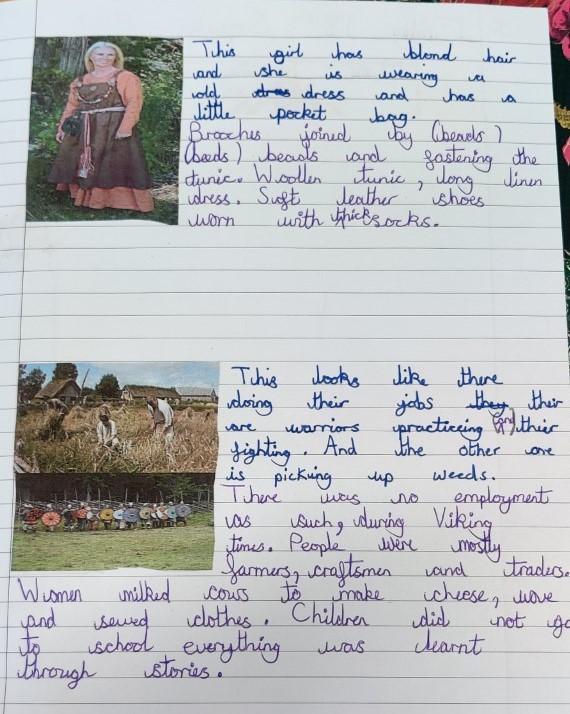 This girl has blond hair
and she is wearing a
old dress dress and has a
little pocket bag.
Broaches joined by (beads)
(beeds) beads and fastening the
tunic. Woollen tunic, long linen
dress. Soft leather shoes
worn with thick socks.
This looks like there
doing their jobs they their
are warriors practiceing (and) their
fighting. And the other one
is picking up weeds.
There was no employment
as such, during Viking
times. People were mostly
farmers, craftsmen and traders.
Women milked cows to make cheese, wove
and sewed clothes. Children did not go
to school everything was learnt
through stories.